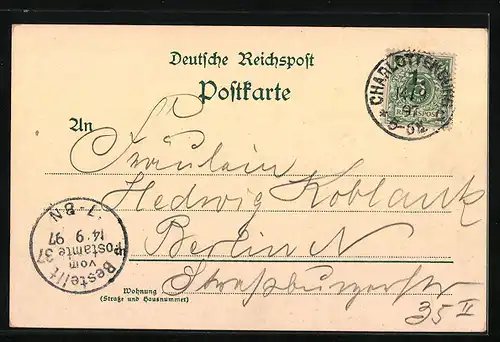 Deutsche Reichspost
Postkarte
CHARLOTTENBURG
1
14/9
97
5-6N
REICHSPOST
An
Fräulein
Hedwig Koblank
Berlin N
Straßburgerstr
35 II
Wohnung
(Straße und Hausnummer)
Bestellt
vom
Postamte 37
14 9 97
7-8N